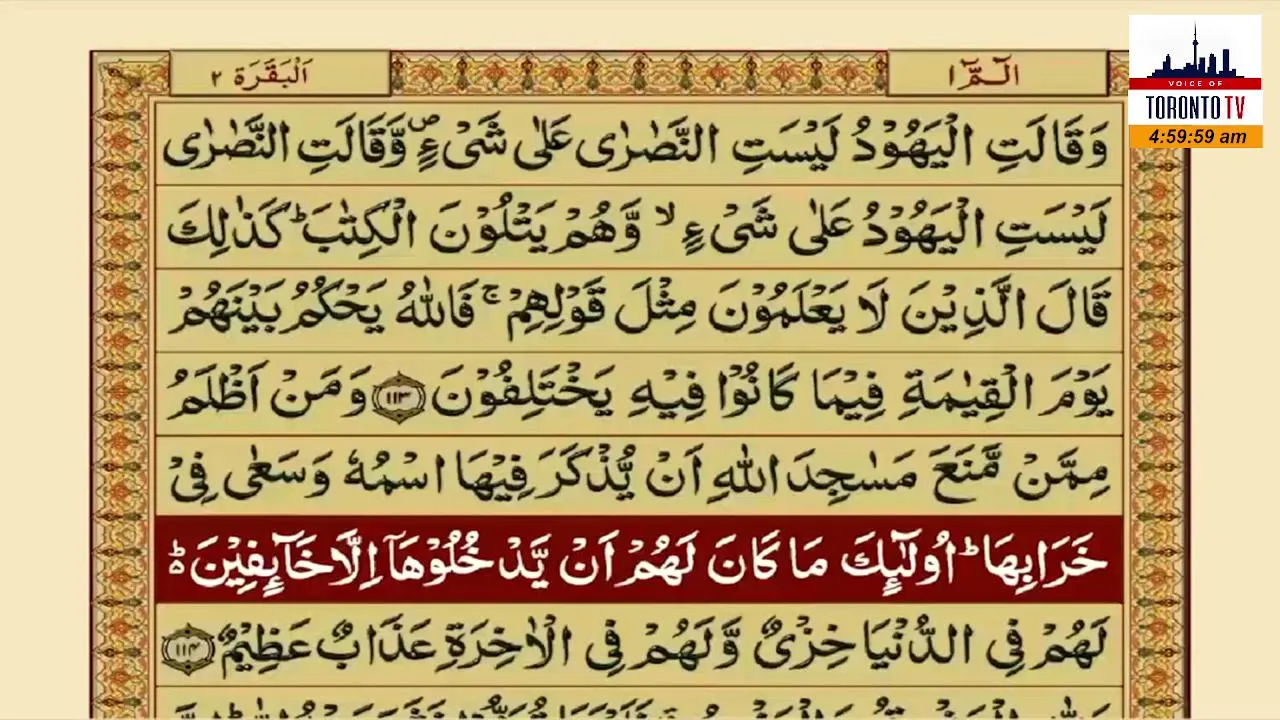 الٓمّٓ ١
اَلْبَقَرَة ٢
VOICE OF
TORONTO TV
4:59:59 am
وَقَالَتِ الْيَهُوْدُ لَيْسَتِ النَّصٰرٰى عَلٰى شَىْءٍ ۖ وَّقَالَتِ النَّصٰرٰى
لَيْسَتِ الْيَهُوْدُ عَلٰى شَىْءٍ ۙ وَّهُمْ يَتْلُوْنَ الْكِتٰبَ ؕ كَذٰلِكَ
قَالَ الَّذِيْنَ لَا يَعْلَمُوْنَ مِثْلَ قَوْلِهِمْ ۚ فَاللّٰهُ يَحْكُمُ بَيْنَهُمْ
يَوْمَ الْقِيٰمَةِ فِيْمَا كَانُوْا فِيْهِ يَخْتَلِفُوْنَ ﴿۱۱۳﴾ وَمَنْ اَظْلَمُ
مِمَّنْ مَّنَعَ مَسٰجِدَ اللّٰهِ اَنْ يُّذْكَرَ فِيْهَا اسْمُهٗ وَسَعٰى فِىْ
خَرَابِهَا ؕ اُولٰٓئِكَ مَا كَانَ لَهُمْ اَنْ يَّدْخُلُوْهَآ اِلَّا خَآئِفِيْنَ ؕ
لَهُمْ فِى الدُّنْيَا خِزْىٌ وَّلَهُمْ فِى الْاٰخِرَةِ عَذَابٌ عَظِيْمٌ ﴿۱۱۴﴾